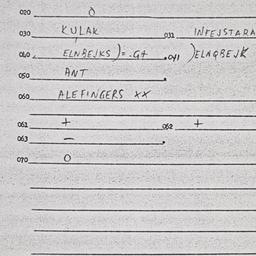 020 0
030 KULAK 031 INFEJSTARA
040 ELNBEJKS)=.G7 .041 )ELNQBEJK
050 ANT
060 ALEFINGERS XX
061 + 062 +
063 —
070 0